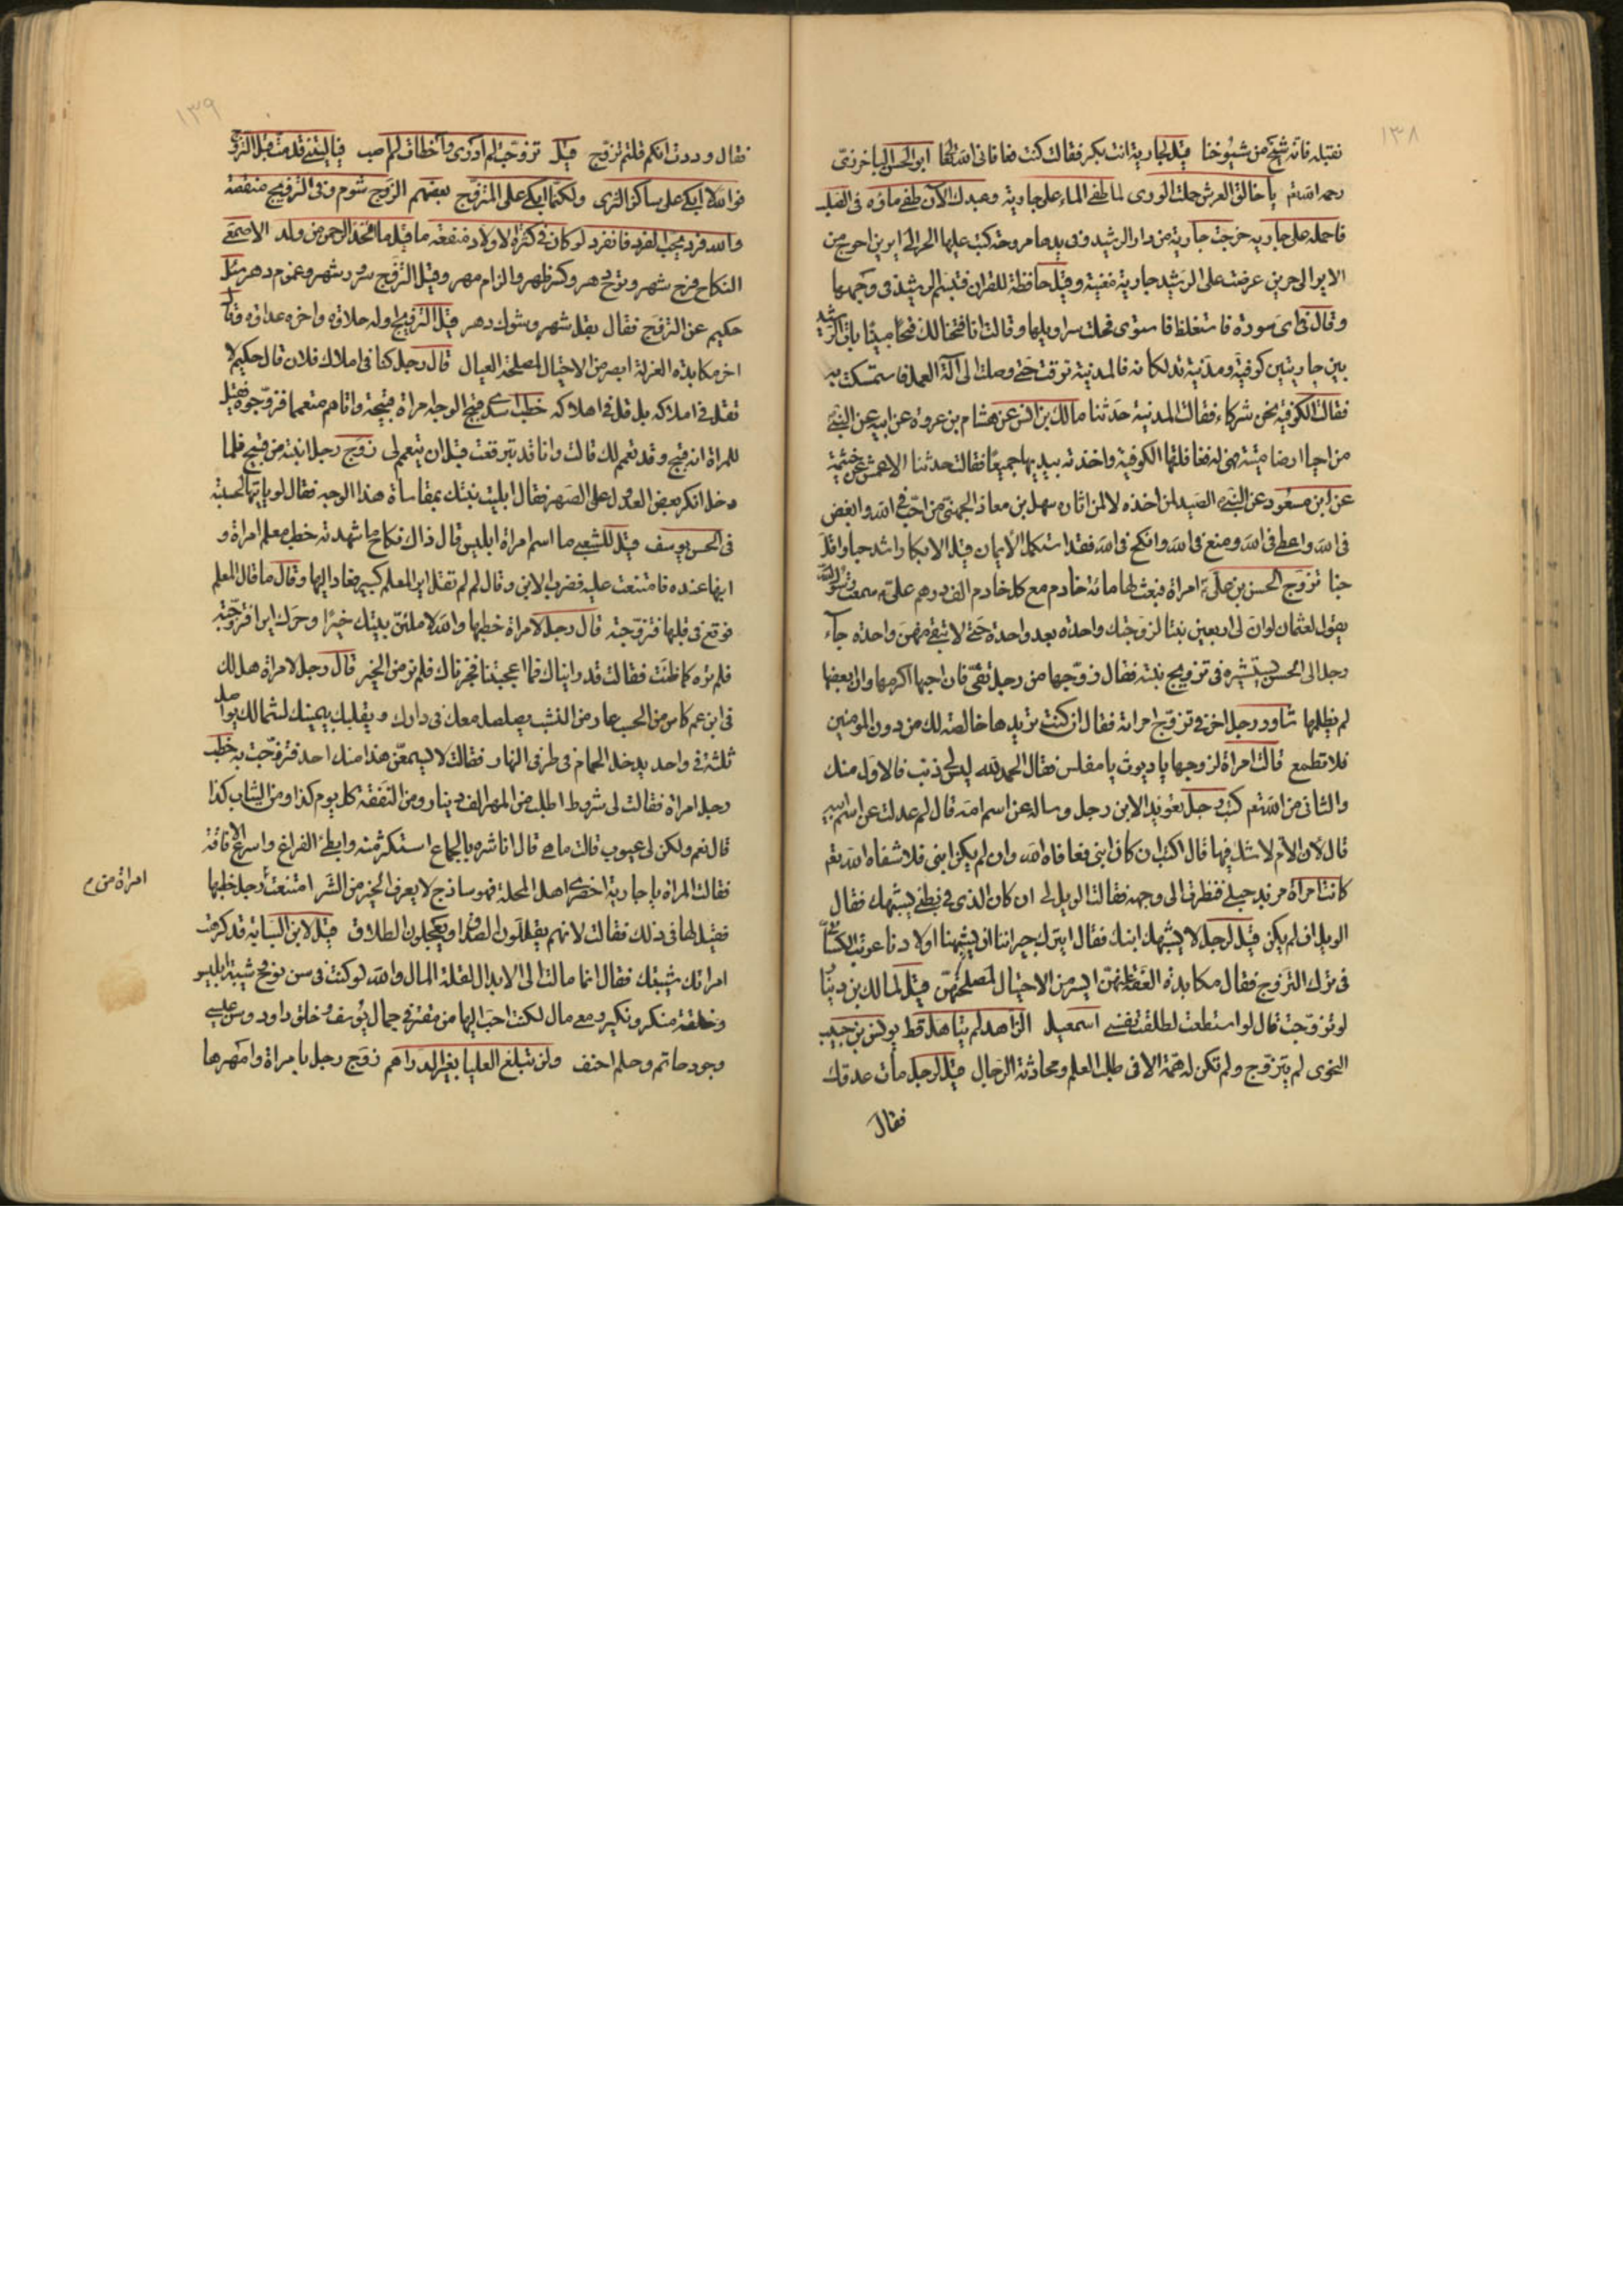 ١٣٨
نقتبله فانه شيخ من شيوخنا قيل لجارية انت بكر فقالت كنت فعافانى الله ابو الحسن الباخرزى
رحمه الله يا خالق العرش حملت الورى لما طغى الماء على جارية وعبدك الآن طغى ماؤه فى الصلب
فاحمله على جاريه خرجت جارية من دار الرشيد وفى يدها مروحة كتب عليها الحر الى ايرين احوج من
الاير الى حرين عرضت على الرشيد جارية مغنية وقيل حافظة للقران فتبسم الرشيد فى وجهها
وقال فى اى سورة فاستغلظ فاستوى فحلت سراويلها وقالت انا فتحنا لك فتحا مبينا بات الرشيد
بين جاريتين كوفية ومدنية تدلكانه فالمدنية ترقت حتى وصلت الى آلة العمل فاستمسكت به
فقالت الكوفية نحن شركاء فقالت المدنية حدثنا مالك بن انس عن هشام بن عروة عن ابيه عن النبى
من احيا ارضا ميتة فهى له فغافلتها الكوفية واخذته بيديها جميعا فقالت حدثنا الاعمش عن خيثمة
عن ابن مسعود عن النبى الصيد لمن اخذه لا لمن اثاره سهل بن معاذ الجهنى من احب فى الله وابغض
فى الله واعطى فى الله ومنع فى الله وانكح فى الله فقد استكمل الايمان قيل الابكار اشد حبا واقل
خبا تزوج الحسن بن على امراة فبعث لها مائة خادم مع كل خادم الف درهم على سمعت رسول الله
يقول لعثمان لو ان لى اربعين بنتا لزوجتك واحدة بعد واحدة حتى لا تبقى منهن واحدة جاء
رجل الى الحسن يستشيره فى تزويج بنته فقال زوجها من رجل تقى فان احبها اكرمها وان ابغضها
لم يظلمها شاور رجل اخر فى تزوج امراة فقال ان كنت تريدها خالصة لك من دون المومنين
فلا تطمع قالت امراة لزوجها يا ديوث يا مفلس فقال الحمد لله ليس لى ذنب فالاول منك
والثانى من الله تعم كتب رجل تعويذا لابن رجل وساله عن اسم امه قال لم عدلت عن اسم ابيه
قال لان الام لا شك فيها قال اكتب ان كان ابنى فعافاه الله وان لم يكن ابنى فلا شفاه الله تعم
كانت امراة مزبد حبلى فنظرت الى وجهه فقالت الويل لى ان كان الذى فى بطنى يشبهك فقال
الويل ان لم يكن قيل لرجل لا يشبهك ابنك فقال ايترك جيراننا ان يشبهنا اولادنا عوتب الكسائى
فى ترك التزوج فقال مكابدة العفة ايسر من الاحتيال لمصلحتهن قيل لمالك بن دينار
لو تزوجت قال لو استطعت لطلقت نفسى اسمعيل الزاهد لم يتاهل قط يونس بن حبيب
النحوى لم يتزوج ولم تكن له همة الا فى طلب العلم ومحادثة الرجال قيل لرجل مات عدوك
فقال
١٣٩
فقال وددت انكم قلتم تزوج قيل تزوجت لم ادر وأخطات لم اصب فيا ليتنى قد مت قبل التزوج
فوالله لا ابكى على ساكن الثرى ولكننى ابكى على المتزوج بعضهم الزوج شوم وفى التزويج منقصة
والله فرد يحب الفرد فانفرد لو كان فى كثرة الاولاد منفعة ما قيل ما اتخذ الرحمن من ولد الاصمعى
النكاح فرح شهر وترح دهر وكسر ظهر والزام مهر وقيل التزوج سرور شهر وغموم دهر سئل
حكيم عن التزوج فقال بقل شهر وشوك دهر قيل التزويج اوله حلاوة واخره عداوة وقال
اخر مكابدة العزلة ايصر من الاحتيال لمصلحة العيال قال رجل كنا فى املاك فلان قال حكيم لا
تقل فى املاكه بل قل فى اهلاكه خطب قبيح الوجه امراة قبيحة واتاهم متعمما فزوجوه فقيل
للمراة انه قبيح وقد تعمم لك قالت وانا قد تبرقعت قبل ان يتعمم لى زوج رجل ابنته من قبيح فلما
دخل انكر بعض العدول على الصهر فقال ابليت بنتك بمقاساة هذا الوجه فقال لو
فى الحسن يوسف قيل للشعبى ما اسم امراة ابليس قال ذاك نكاح ما شهدته خطب معلم امراة و
ابنها عنده فامتنعت عليه فضرب الابن وقال لم لم تقل اير المعلم كبير فعاد اليها وقال ما قال المعلم
فوقع فى قلبها فتزوجته قال رجل لامراة خطبها والله لاملئن بيتك خيرا وحرك ايرا فتزوجته
فلم تره كما ظنت فقالت قد راينا فما اعجبتنا فلم نر من الخير قال رجل لامراة هل لك
فى ابن عم كاس من الحسب عار من النشب يصلصل معك فى دارك ويقلبك بيمينك لشمالك يواصل
ثلثة فى واحد يدخل الحمام فى طرفى النهار فقالت لا يسمعن هذا منك احد فتزوجت به خطب
رجل امراة فقالت لى شروط اطلب من المهر الف دينار ومن النفقة كل يوم كذا ومن الثياب كذا
قال نعم ولكن لى عيوب قالت ما هى قال انا شره بالجماع استكثر منه وابطئ الفراغ واسرع الافاقة
فقالت المراة يا جارية احضرى اهل المحلة فهو ساذج لا يعرف الخير من الشر امتنعت رجل خطبها
امراة من م
فقيل لها فى ذلك فقالت لانهم يقللون الصداق ويعجلون الطلاق قيل لابن السيابة قد كرهت
امراتك شيبتك فقال انما مالت الى الابدال لقلة المال والله لو كنت فى سن نوح وشيبة ابليس
وخلقة منكر ونكير ومعى مال لكنت احب اليها من مقتر فى جمال يوسف وخلق داود وسن عيسى
وجود حاتم وحلم احنف ولن تبلغ العليا بغير الدراهم زوج رجل بامراة وامهرها